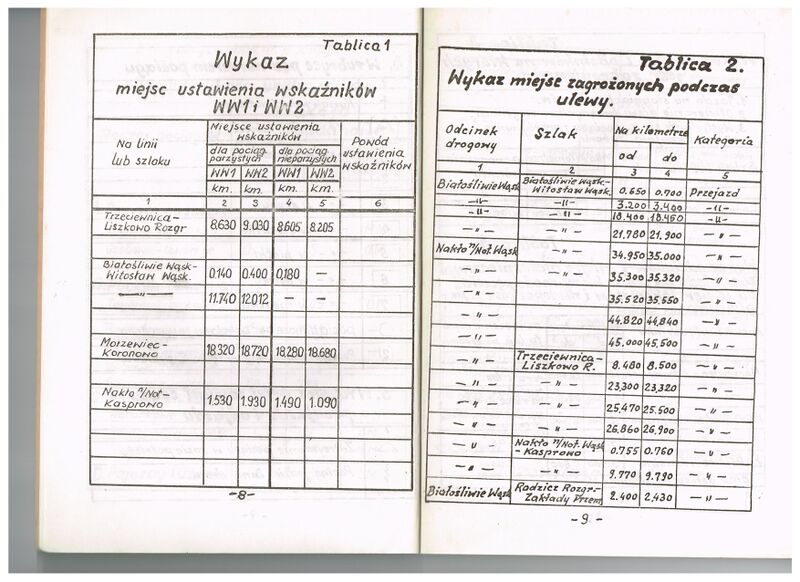 Tablica 1
Wykaz
miejsc ustawienia wskaźników
WW1 i WW2
Na linii lub szlaku | Miejsce ustawienia wskaźników | Powód ustawienia wskaźników
dla pociąg. parzystych | dla pociąg. nieparzystych
WW1 | WW2 | WW1 | WW2
km. | km. | km. | km.
1 | 2 | 3 | 4 | 5 | 6
Trzeciewnica-
Liszkowo Rozgr | 8.630 | 9.030 | 8.605 | 8.205
Białośliwie Wąsk-
Witosław Wąsk. | 0.140 | 0.400 | 0,180 | —
—"— | 11.740 | 12.012 | — | —
Morzewiec-
Koronowo | 18.320 | 18.720 | 18.280 | 18.680
Nakło n/Not-
Kasprowo | 1.530 | 1.930 | 1.490 | 1.090
-8-
Tablica 2.
Wykaz miejsc zagrożonych podczas
ulewy.
Odcinek drogowy | Szlak | Na kilometrze | Kategoria
od | do
1 | 2 | 3 | 4 | 5
Białośliwie Wąsk | Białośliwie Wąsk.- Witosław Wąsk. | 0.650 | 0.700 | Przejazd
—"— | —"— | 3.200 | 3.400 | —"—
—"— | —"— | 18.400 | 18.450 | —"—
—"— | 21.780 | 21.900 | —"—
Nakło n/Not. Wąsk | —"— | 34.950 | 35.000 | —"—
—"— | —"— | 35,300 | 35,320 | —"—
—"— | —"— | 35,520 | 35,550 | —"—
—"— | —"— | 44,820 | 44,840 | —"—
—"— | —"— | 45.000 | 45,500 | —"—
—"— | Trzeciewnica- Liszkowo R. | 8.480 | 8.500 | —"—
—"— | —"— | 23,300 | 23,320 | —"—
—"— | —"— | 25,470 | 25.500 | —"—
—"— | —"— | 26.860 | 26,900 | —"—
—"— | Nakło n/Not. Wąsk - Kasprowo | 0.755 | 0.760 | —"—
—"— | —"— | 9.770 | 9.790 | —"—
Białośliwie Wąsk | Radzicz Rozgr.- Zakłady Przem. | 2.400 | 2,430 | —"—
-9-